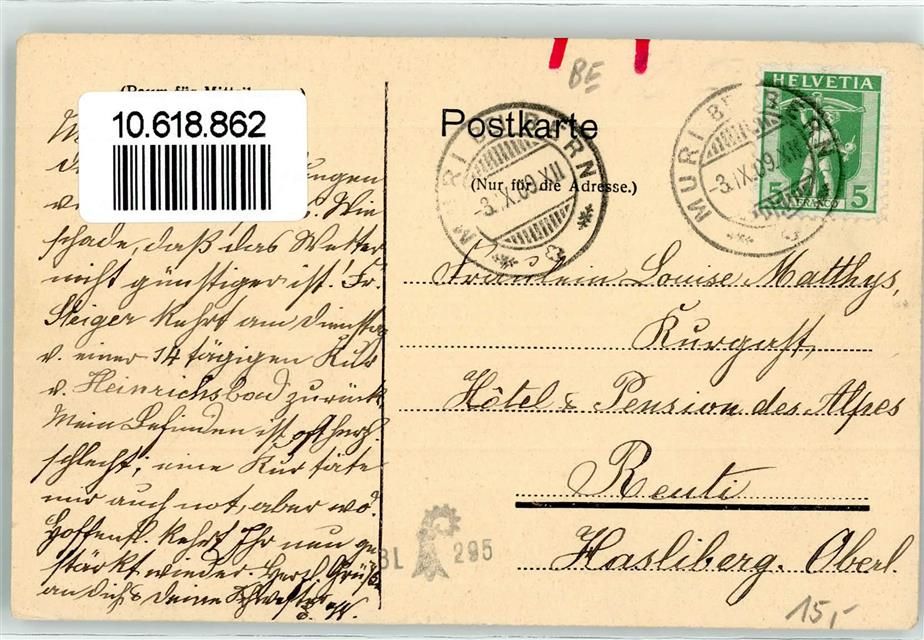 BE
(Raum für Mitteil
10.618.862
Postkarte
(Nur für die Adresse.)
MURI B. BERN
-3.IX.09.XII
MURI B. BERN
-3.IX.09.XII
HELVETIA
5 FRANCO 5
ungen
Wie
schade, daß das Wetter
nicht günstiger ist! Fr.
Steiger kehrt am Dienstag
v. einer 14 tägigen Kur
v. Heinrichsbad zurück
Mein Befinden ist oft herzl.
schlecht; eine Kur täte
mir auch not, aber wo.
Hoffentl. kehrt Ihr nun ge
stärkt wieder. Herzl. Grüße
an dich & deine Schwester
Fräulein Louise Matthys,
Kurgast,
Hôtel & Pension des Alpes
Reuti
Hasliberg. Oberl.
BL 295
15,-